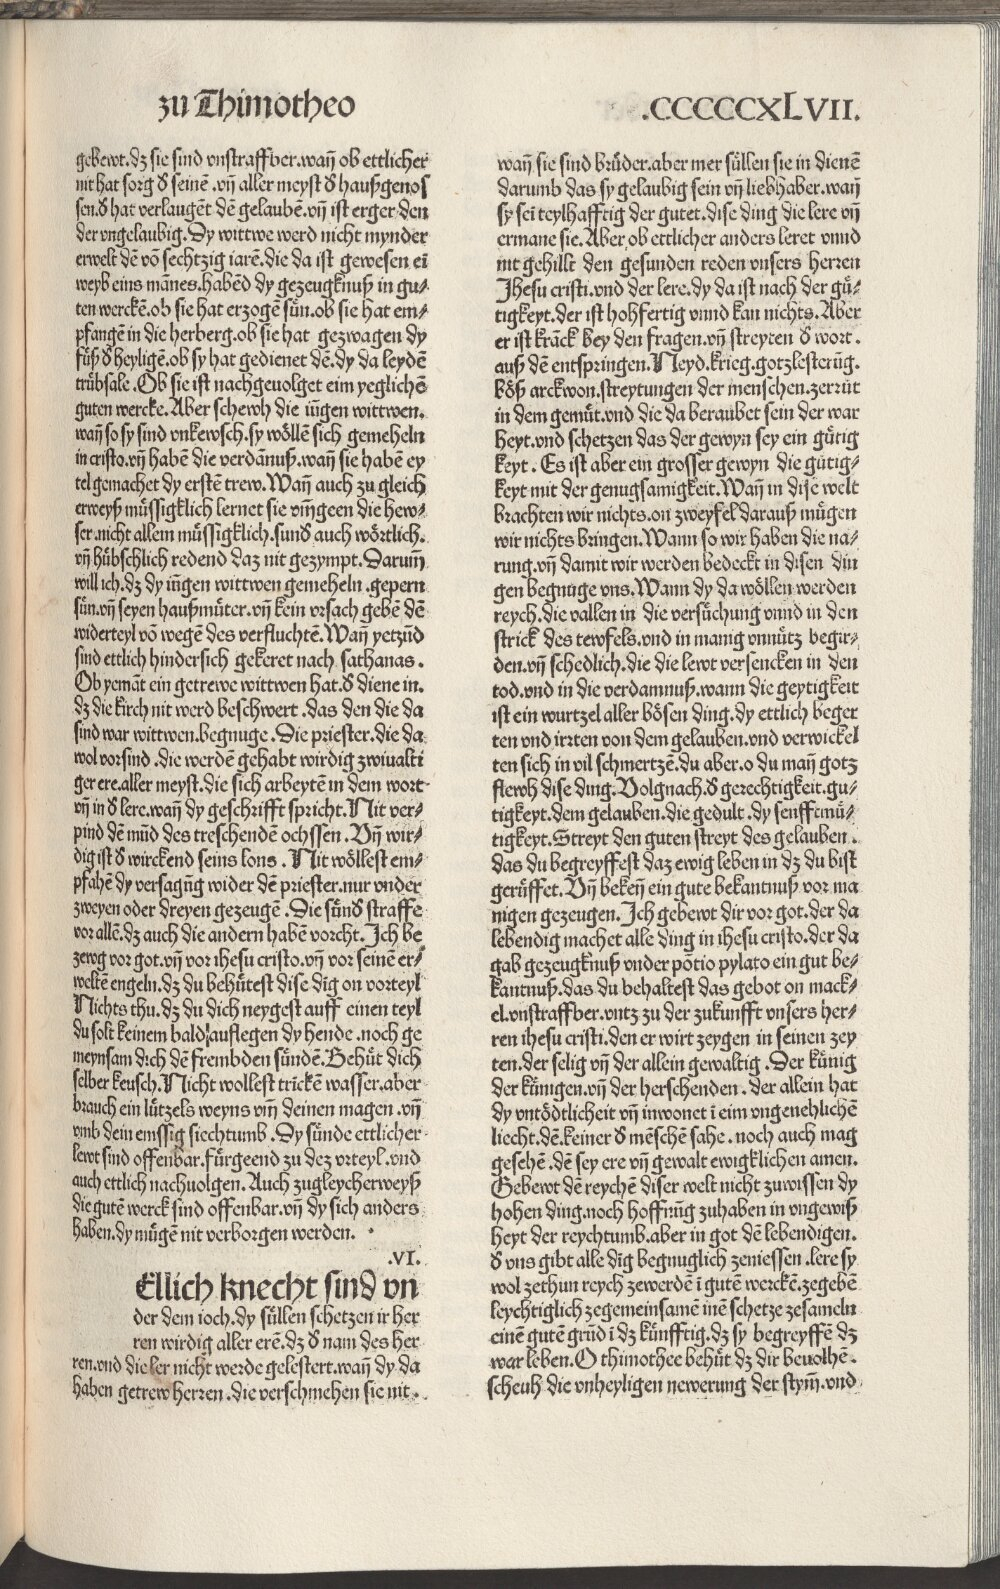 zu Thimotheo
.CCCCCCXLVII.
gebewt.dz sie sind vnstraffber.wañ ob ettlicher
nit hat sorg ď seinē.vñ aller meyst ď haußgenos
sen.ď hat verlaugēt dē gelaubē.vñ ist erger.den
der vngelaubig.Dy wittwe werd nicht mynder
erwelt dē vō sechtzig iarē.die da ist gewesen eī
weyb eins mānes.habēd dy gezeugknuß in gu⸗
ten werckē.ob sie hat erzogē sün.ob sie hat em⸗
pfangē in die herberg.ob sie hat gezwagen dy
füß ď heyligē.ob sy hat gedienet dē.dy da leydē
trübsale.Ob sie ist nachgeuolget eim yeglichē
guten wercke.Aber schewh die iūgen wittwen.
wañ so sy sind vnkewsch.sy wöllē sich gemeheln
in cristo.vñ habē die verdānuß.wañ sie habē ey
tel gemachet dy erstē trew.Wañ auch zu gleich
erweyß müssigklich lernet sie vm̄geen die hew⸗
ser.nicht allein müssigklich.sunď auch wörtlich.
vñ hübschlich redend daz nit gezympt.Darum̄
will ich.dz dy iūgen wittwen gemeheln.gepern
sün.vñ seyen haußmüter.vñ kein vrsach gebē dē
widerteyl vō wegē des verfluchtē.Wañ yetzūd
sind ettlich hindersich gekeret nach sathanas.
Ob yemāt ein getrewe wittwen hat.ď diene in.
dz die kirch nit werd beschwert.das den die da
sind war wittwen.begnuge.Die priester.die da
wol vorsind.die werdē gehabt wirdig zwiualti
ger ere.aller meyst.die sich arbeytē in dem wort
vñ in ď lere.wañ dy geschrifft spricht.Nit ver⸗
pind dē mūd des treschendē ochssen.Vñ wir⸗
dig ist ď wirckend seins lons.Nit wöllest em⸗
pfahē dy versagūg wider dē priester.nur vnder
zweyen oder dreyen gezeugē.Die sünď straffe
vor allē.dz auch die andern habē vorcht.Ich be
zewg vor got.vñ vor ihesu cristo.vñ vor seinē er⸗
weltē engeln.dz du behütest dise dig on vorteyl
Nichts thu.dz du dich neygest auff einen teyl
du solt keinem bald auflegen dy hende.noch ge
meynsam dich dē frembden sündē.Behüt dich
selber keusch.Nicht wollest trickē wasser.aber
brauch ein lützels weyns vm̄ deinen magen.vñ
vmb dein emssig siechtumb.Dy sünde ettlicher
lewt sind offenbar.fürgeend zu dez vrteyl.vnd
auch ettlich nachuolgen.Auch zugleycherweyß
die gutē werck sind offenbar.vñ dy sich anders
haben.dy mügē nit verborgen werden.
.VI.
Ellich knecht sind vn
der dem ioch.dy süllen schetzen ir her
ren wirdig aller erē.dz ď nam des her
ren.vnd die ler nicht werde gelestert.wañ dy da
haben getrew herren.die verschmehen sie nit.
wañ sie sind brüder.aber mer süllen sie in dienē
darumb das sy gelaubig sein vñ liebhaber.wañ
sy sei teylhafftig der gutet.dise ding die lere vñ
ermane sie.Aber ob ettlicher anders leret vnnd
nit gehillt den gesunden reden vnsers herren
Jhesu cristi.vnd der lere.dy da ist nach der gü⸗
tigkeyt.der ist hohfertig vnnd kan nichts.Aber
er ist kranck bey den fragen.vñ streyten ď wort.
auß dē entspringen.Neyd.krieg.gotzlesterūg.
böß arckwon.streytungen der menschen.zerrüt
in dem gemüt.vnd die da beraubet sein der war
heyt.vnd schetzen das der gewyn sey ein gütig
keyt.Es ist aber ein grosser gewyn die gütig⸗
keyt mit der genugsamigkeit.Wañ in dise welt
brachten wir nichts.on zweyfel darauß mügen
wir nichts bringen.Wann so wir haben die na⸗
rung.vñ damit wir werden bedeckt in disen din
gen begnuge vns.Wann dy da wöllen werden
reych.die vallen in die versüchung vnnd in den
strick des tewfels.vnd in manig vnnütz begir⸗
den.vñ schedlich.die die lewt versencken in den
tod.vnd in die verdamnuß.wann die geytigkeit
ist ein wurtzel aller bösen ding.dy ettlich beger
ten vnd irrten von dem gelauben.vnd verwickel
ten sich in vil schmertzē.du aber.o du mañ gotz
flewh dise ding.Volgnach.ď gerechtigkeit.gu⸗
tigkeyt.dem gelauben.die gedult.dy senfftmü⸗
tigkeyt.Streyt den guten streyt des gelauben.
das du begreyffest daz ewig leben in dz du bist
gerüffet.Vñ bekeñ ein gute bekantnuß vor ma
nigen gezeugen.Ich gebewt dir vor got.der da
lebendig machet alle ding in ihesu cristo.der da
gab gezeugknuß vnder pōtio pylato ein gut be⸗
kantnuß.das du behaltest das gebot on mack⸗
el.vnstraffber.vntz zu der zukunfft vnsers her⸗
ren ihesu cristi.den er wirt zeygen in seinen zey
ten.der selig vñ der allein gewaltig.Der künig
der künigen.vñ der herschenden.der allein hat
dy vntödtlicheit vñ inwonet ī eim vngenehlichē
liecht.dē.keiner ď mēschē sahe.noch auch mag
gesehē.dē sey ere vñ gewalt ewigklichen amen.
Gebewt dē reychē diser welt nicht zuwissen dy
hohen ding.noch hoffnūg zuhaben in vngewiß
heyt der reychtumb.aber in got dē lebendigen.
ď vns gibt alle dīg begnuglich zeniessen.lere sy
wol zethun reych zewerdē ī gutē werckē.zegebē
leychtiglich zegemeinsamē inē schetze zesameln
einē gutē grūd ī dz künfftig.dz sy begreyffē dz
war leben.O thimothee behüt dz dir beuolhē.
scheuh die vnheyligen newerung der stym̄.vnd